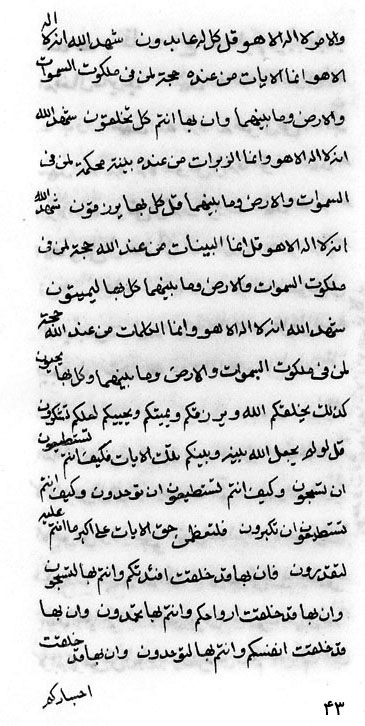 والامر لا اله الا هو قل كل له عابدون شهد الله انه لا اله
الا هو انما الايات من عنده حجة لمن في ملكوت السموات
والارض وما بينهما وان بها انتم كل تخلقون شهد الله
انه لا اله الا هو وانما الزبرات من عنده بينة محكمة لمن في
السموات والارض وما بينهما قل كل بها يرزقون شهد الله
انه لا اله الا هو قل انما البينات من عند الله حجة لمن في
ملكوت السموات والارض وما بينهما كل بها ليميتون
شهد الله انه لا اله الا هو وانما الكلمات من عند الله حجة
لمن في ملكوت السموات والارض وما بينهما وكل بها يحيون
كذلك يخلقكم الله ويرزقكم ويميتكم ويحييكم لعلكم تشكرون
قل لو لم يجعل الله بينه وبينكم تلك الايات فكيف انتم تستطيعون
ان تسبحون وكيف انتم تستطيعون ان توحدون وكيف انتم
تستطيعون ان تكبرون فلتعظمن حق الايات على اكبر ما انتم عليه
لتقدرون فان بها قد خلقت افئدتكم وانتم بها لتسبحون
وان بها قد خلقت ارواحكم وانتم بها تحمدون وان بها
قد خلقت انفسكم وانتم بها لتوحدون وان بها قد خلقت
اجسادكم
۴۳